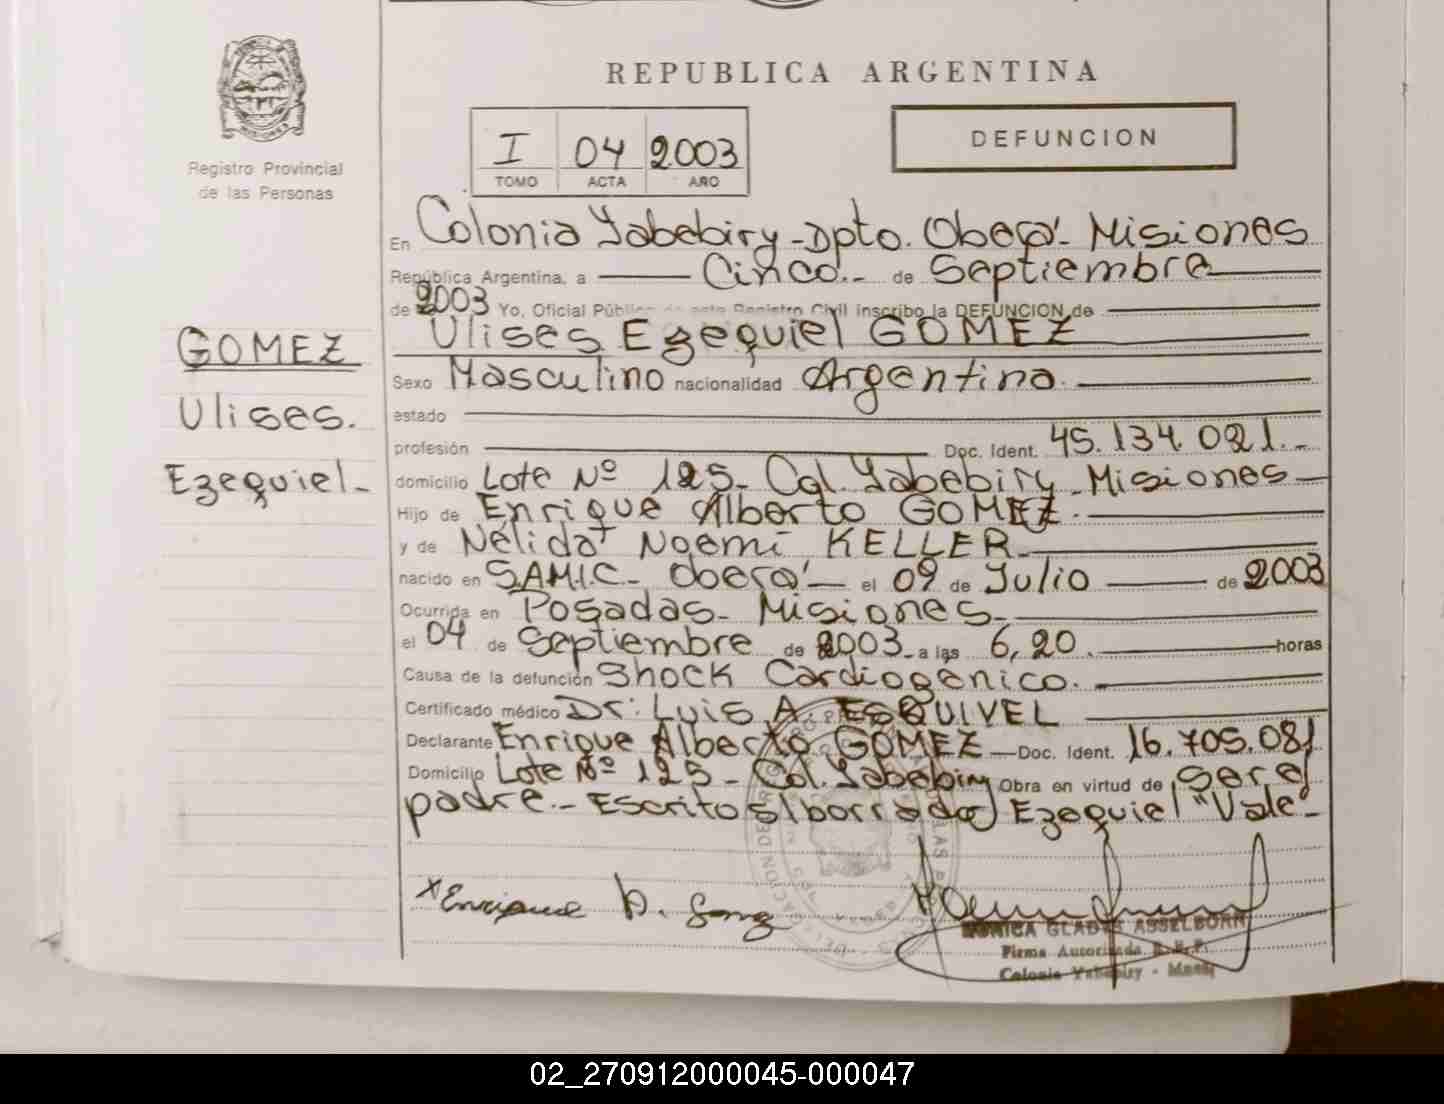 REPUBLICA ARGENTINA
MISIONES
Registro Provincial
de las Personas
I 04 2003
TOMO ACTA AÑO
DEFUNCION
En Colonia Yabebiry - Dpto. Oberá - Misiones
República Argentina, a Cinco.- de Septiembre
de 2003 Yo, Oficial Público de este Registro Civil inscribo la DEFUNCION de
Ulises Ezequiel GOMEZ
GOMEZ
Ulises.
Ezequiel -
Sexo Masculino nacionalidad Argentina.
estado
profesión Doc. Ident. 45.134.021.-
domicilio Lote Nº 125 - Col. Yabebiry - Misiones
Hijo de Enrique Alberto GOMEZ.
y de Nélida Noemi KELLER
nacido en S.A.M.I.C. - Oberá el 09 de Julio de 2003
Ocurrida en Posadas - Misiones.
el 04 de Septiembre de 2003 a las 6,20. horas
Causa de la defunción Shock Cardiogénico.
Certificado médico Dr: Luis A. ESQUIVEL
Declarante Enrique Alberto GOMEZ Doc. Ident. 16.705.081
Domicilio Lote Nº 125 - Col. Yabebiry Obra en virtud de ser el
padre.- Escrito s/borrado Ezequiel "Vale"
x Enrique A. Gomez
MONICA GLADIS ASSELBORN
Firma Autorizada R.P.P.
Colonia Yabebiry - Mnes
02_270912000045-000047